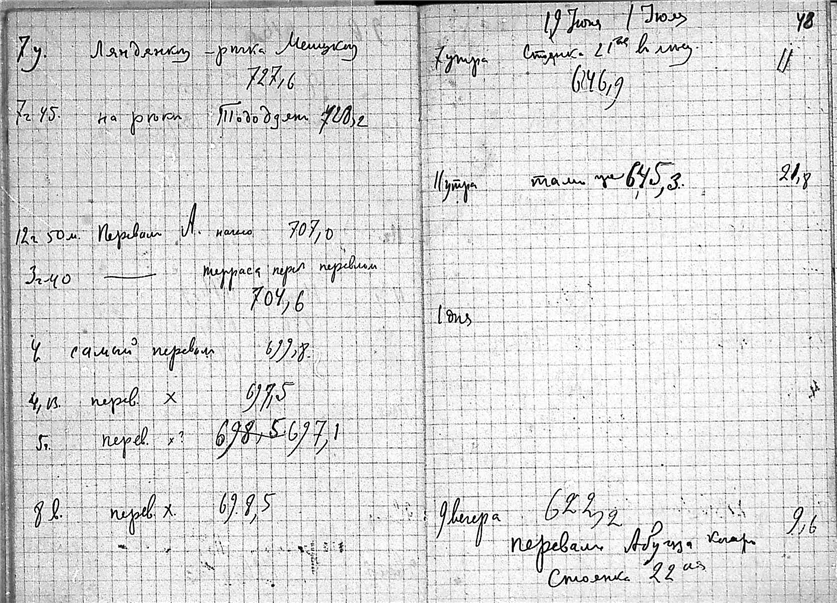 7 у. Ляндянкоу - рѣка
727,6
7 ч 45. на рѣки 728,2
12 ч 50 м. Перевал А. 707,0
3 ч 40 — терраса перед перевалом
704,6
4 самый перевал 699,8.
перев. x 697,5
5 ч. перев. x? 698,5 697,1
8 в. перев. x. 698,5
19 Июня 1 Июля 48
7 утра Стоянка 21ая 11
646,9
11 утра там же 645,3. 21,8
1 дня
9 вечера 622,2 9,6
перевал
Стоянка 22ая